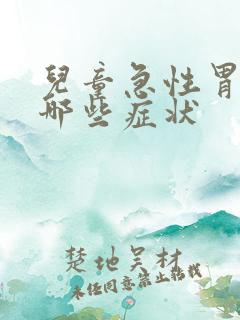 兒童急性胃
哪些症状
楚地吴材
未经同意禁止转载